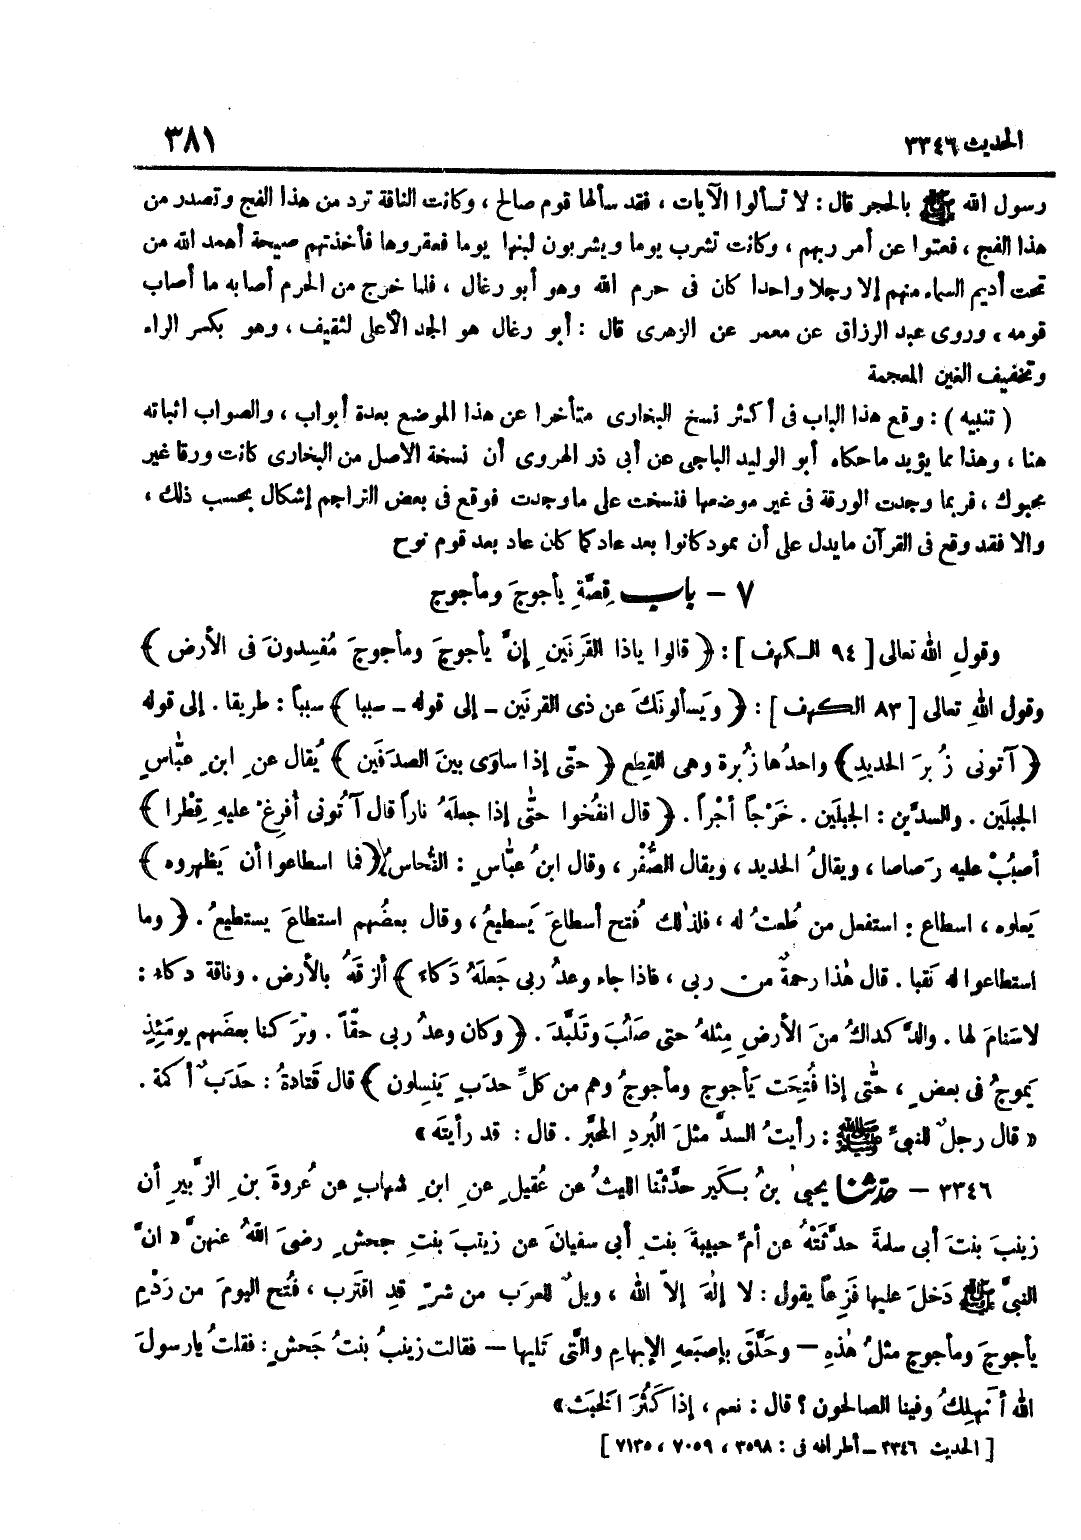 الحديث ٣٣٤٦ ٣٨١
رسول الله ﷺ بالحجر قال : لا تسألوا الآيات ، فقد سألها قوم صالح ، وكانت الناقة ترد من هذا الفج وتصدر من
هذا الفج ، فعتوا عن أمر ربهم ، وكانت تشرب يوما ويشربون لبنها يوما فعقروها فأخذتهم صيحة أهمد الله من
تحت أديم السماء منهم إلا رجلا واحدا كان فى حرم الله وهو أبو رغال ، فلما خرج من الحرم أصابه ما أصاب
قومه ، وروى عبد الرزاق عن معمر عن الزهرى قال : أبو رغال هو الجد الأعلى لثقيف ، وهو بكسر الراء
وتخفيف الغين المعجمة
( تنبيه ) : وقع هذا الباب فى أكثر نسخ البخارى متأخرا عن هذا الموضع بعدة أبواب ، والصواب اثباته
هنا ، وهذا مما يؤيد ما حكاه أبو الوليد الباجى عن أبى ذر الهروى أن نسخة الاصل من البخارى كانت ورقا غير
محبوك ، فربما وجدت الورقة فى غير موضعها فنسخت على ما وجدت فوقع فى بعض التراجم إشكال بحسب ذلك ،
والا فقد وقع فى القرآن ما يدل على أن ثمود كانوا بعد عاد كما كان عاد بعد قوم نوح
٧ - باب قِصَّةِ يأجوجَ ومأجوج
وقولِ الله تعالى [ ٩٤ الكهف ] : ﴿ قالوا ياذا القَرنَينِ إنَّ يأجوجَ ومأجوجَ مُفسِدونَ فى الأرض ﴾
وقول اللهِ تعالى [ ٨٣ الكهف ] : ﴿ ويَسألونَكَ عن ذى القرنَين - إلى قوله - سببا ﴾ سبباً : طريقا . إلى قوله
﴿ آتونى زُبرَ الحديدِ ﴾ واحدُها زُبرة وهى القِطع ﴿ حتّى إذا ساوَى بينَ الصدَفَين ﴾ يُقال عنِ ابنِ عبّاسٍ
الجبلَين . والسدَّين : الجبلَين . خَرْجاً أجْراً . ﴿ قال انفُخوا حتّى إذا جعلَهُ ناراً قال آتُونى أُفرِغْ عليهِ قِطْرا ﴾
أصبُبْ عليه رَصاصا ، ويقالُ الحديد ، ويقال الصُّفْر ، وقال ابنُ عبّاسٍ : النُّحاس ﴿ فما اسطاعوا أن يَظهروه ﴾
يَعلوه ، اسطاع : استفعل من طُعتُ له ، فلذٰلك فُتح أسطاعَ يَسطيعُ ، وقال بعضُهم استطاعَ يستطيعُ . ﴿ وما
استطاعوا له نَقبا . قال هٰذا رحمةٌ من ربى ، فاذا جاء وعدُ ربى جَعلَهُ دَكاءَ ﴾ ألزقَهُ بالأرض . وناقة دكاء :
لا سَنامَ لها . والدَّكداكُ منَ الأرضِ مِثلهُ حتى صَلُبَ وتَلبَّدَ . ﴿ وكان وعدُ ربى حقّاً . وتَركنا بعضَهم يومَئِذٍ
يَموجُ فى بعضٍ ، حتّى إذا فُتِحَت يَأجوج ومأجوجُ وهم من كلِّ حدَبٍ يَنسِلون ﴾ قال قَتادةُ : حَدَبٌ أكمة .
« قال رجلٌ للنبىِّ ﷺ : رأيتُ السدَّ مثلَ البُردِ المحبَّر . قال : قد رأيتَه »
٣٣٤٦ - حدّثنا يحيىٰ بنُ بُكَير حدَّثنا الليثُ عن عُقيلٍ عنِ ابنِ شهابٍ عن عُروةَ بنِ الزُّبيرِ أن
زينبَ بنتَ أبى سلمةَ حدَّثَتْهُ عن أمِّ حبيبةَ بنتِ أبى سفيانَ عن زينبَ بنتِ جحشٍ رضىَ اللهُ عنهنَّ « انَّ
النبىَّ ﷺ دَخلَ عليها فَزِعاً يقول : لا إلٰهَ إلاّ الله ، ويلٌ للعرَب من شرٍّ قدِ اقترَب ، فُتح اليومَ من رَدْمِ
يأجوجَ ومأجوج مثلُ هٰذهِ - وحَلَّقَ بإصبَعهِ الإبهامِ والَّتى تَليها - فقالت زينبُ بنتُ جَحشٍ : فقلتُ يارسولَ
الله أنَهلِكُ وفينا الصالحون ؟ قال : نعم ، إذا كَثُرَ الخبَث »
[ الحديث ٣٣٤٦ - أطرافه فى : ٣٥٩٨ ، ٧٠٥٩ ، ٧١٣٥ ]